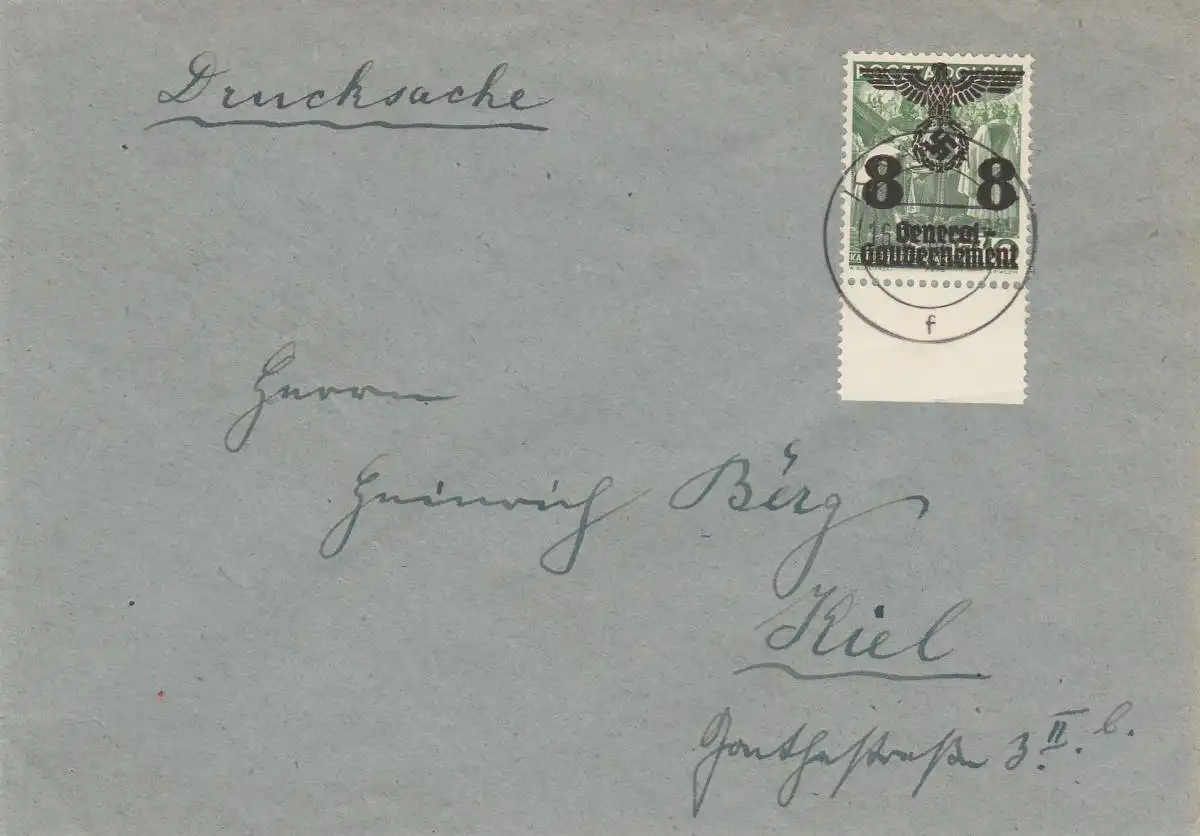 Drucksache
POCZTA POLSKA
8 8
General-
Gouvernement
10
f
Herrn
Heinrich Berg
Kiel
Goethestraße 3. II. b.